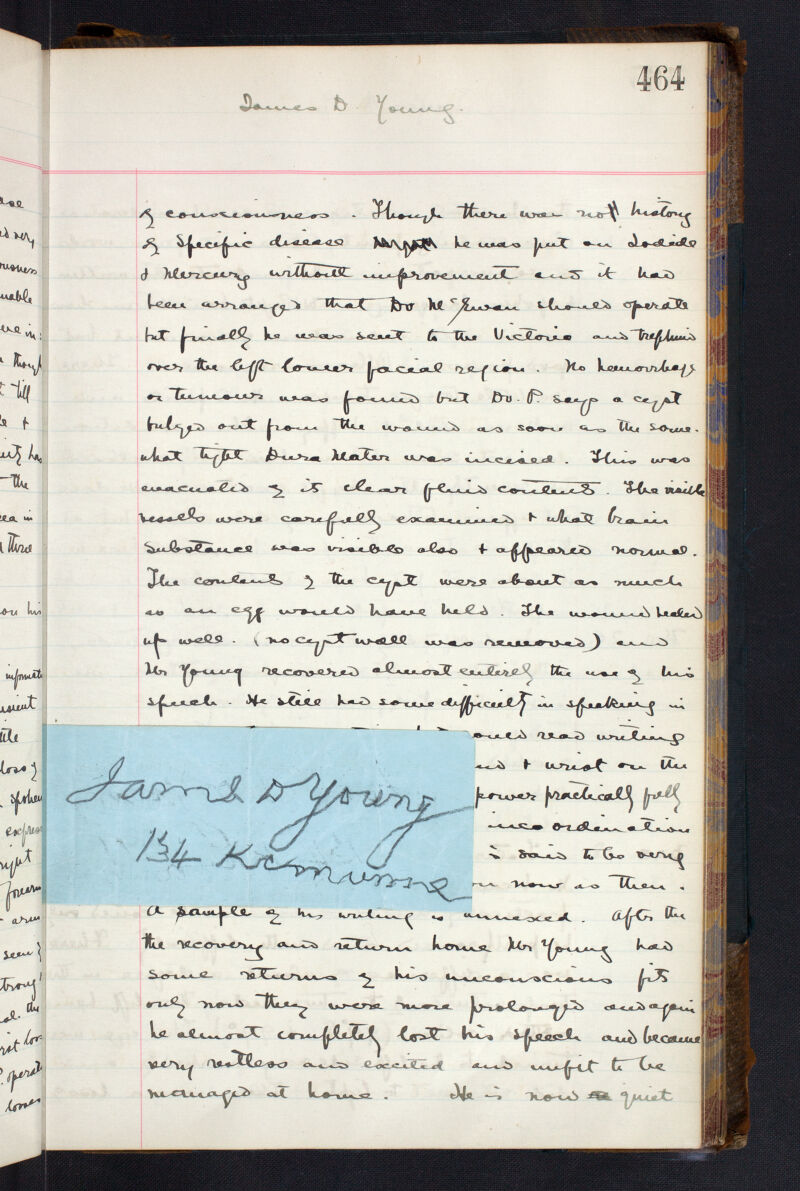 464
James D. Young.
of consciousness. Though there was no history
of Specific disease he was put on Iodide
& Mercury without improvement and it had
been arranged that Dr McEwan should operate
but finally he was sent to the Victoria and trephined
over the left lower facial region. No hemorrhage
or tumour was found but Dr. P. says a cyst
bulged out from the wound as soon as the some-
what tight Dura Mater was incised. This was
evacuated of its clear fluid contents. The visible
vessels were carefully examined & what brain
substance was visible also & appeared normal.
The contents of the cyst were about as much
as an egg would have held. The wound healed
up well. (no cyst wall was removed) and
Mr Young recovered almost entirely the use of his
speech. He still had some difficulty in speaking in
could read writing
& wrist on the
power practically fully
incoordination
is said to be very
now as then.
James D Young
134
A sample of his writing is annexed. After the
the recovery and return home Mr Young had
some returns of his unconscious fits
only now they were more prolonged and again
he almost completely lost his speech and became
very restless and excited and unfit to be
managed at home. He is now quiet